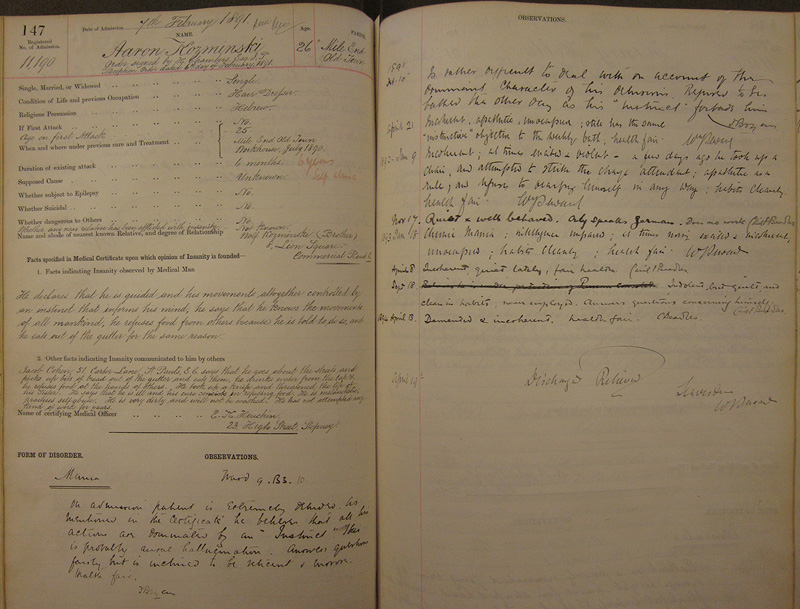 147
Registered
No. of Admission.
11190
Date of Admission 7th February 1891
NAME.
Aaron Kozminski
Order signed by
Reception Order dated 6th day of February 1891
Age.
26
PARISH.
Mile End
Old Town
Single, Married, or Widowed Single
Condition of Life and previous Occupation Hair Dresser
Religious Persuasion Hebrew
If First Attack No.
Age on first Attack 25
When and where under previous care and Treatment Mile End Old Town
Workhouse, July 1890.
Duration of existing attack 6 months 6 years
Supposed Cause Unknown
Whether subject to Epilepsy No.
Whether Suicidal No.
Whether dangerous to Others No.
Whether any near relative has been afflicted with insanity Not Known.
Name and abode of nearest known Relative, and degree of Relationship Wolf Kozminski (Brother)
Lion Square
Commercial Road E.
Facts specified in Medical Certificate upon which opinion of Insanity is founded—
1. Facts indicating Insanity observed by Medical Man
He declares that he is guided and his movements altogether controlled by
an instinct that informs his mind, he says that he knows the movements
of all mankind, he refuses food from others because he is told to do so, and
he eats out of the gutter for the same reason.
2. Other facts indicating Insanity communicated to him by others
Jacob Cohen, 51 Carter Lane, St Pauls, E.C. says that he goes about the streets and
picks up bits of bread out of the gutter and eats them, he drinks water from the tap &
he refuses food at the hands of others. He took up a knife and threatened the life of
his sister. He says that he is ill and his cure consists in refusing food. He is melancholic,
practises self-abuse. He is very dirty and will not be washed. He has not attempted any
kind of work for years.
Name of certifying Medical Officer E. H. Houchin
23, High Street, Stepney
FORM OF DISORDER.
OBSERVATIONS.
Mania
Ward 9. B3. 10
On admission patient is extremely deluded. As
mentioned in the certificate he believes that all his
actions are dominated by an "Instinct" This
is probably aural hallucination. Answers questions
fairly but is inclined to be reticent & morose.
Health fair.
OBSERVATIONS.
1891
Feb. 10 Is rather difficult to deal with on account of the
dominant character of his delusions. Refused to be
bathed the other day as his "Instinct" forbade him
April 21 Incoherent, apathetic, unoccupied; still has the same
"instinctive" objection to the weekly bath; health fair.
Jan 9 Incoherent; at times excited & violent - a few days ago he took up a
chair, and attempted to strike the charge attendant; apathetic as a
rule, and refuses to occupy himself in any way; habits cleanly
health fair.
Nov 17. Quiet & well behaved. Only speaks German. Does no work
Jan 18. Chronic Mania; intelligence impaired; at times noisy, excited & incoherent,
unoccupied; habits cleanly; health fair.
April 8 Incoherent, quiet lately, fair health.
Sept 18. Indolent, but quiet, and
clean in habits, never employed. Answers questions concerning himself.
April 13. Demented & incoherent, health fair.
April 19th Discharged Relieved